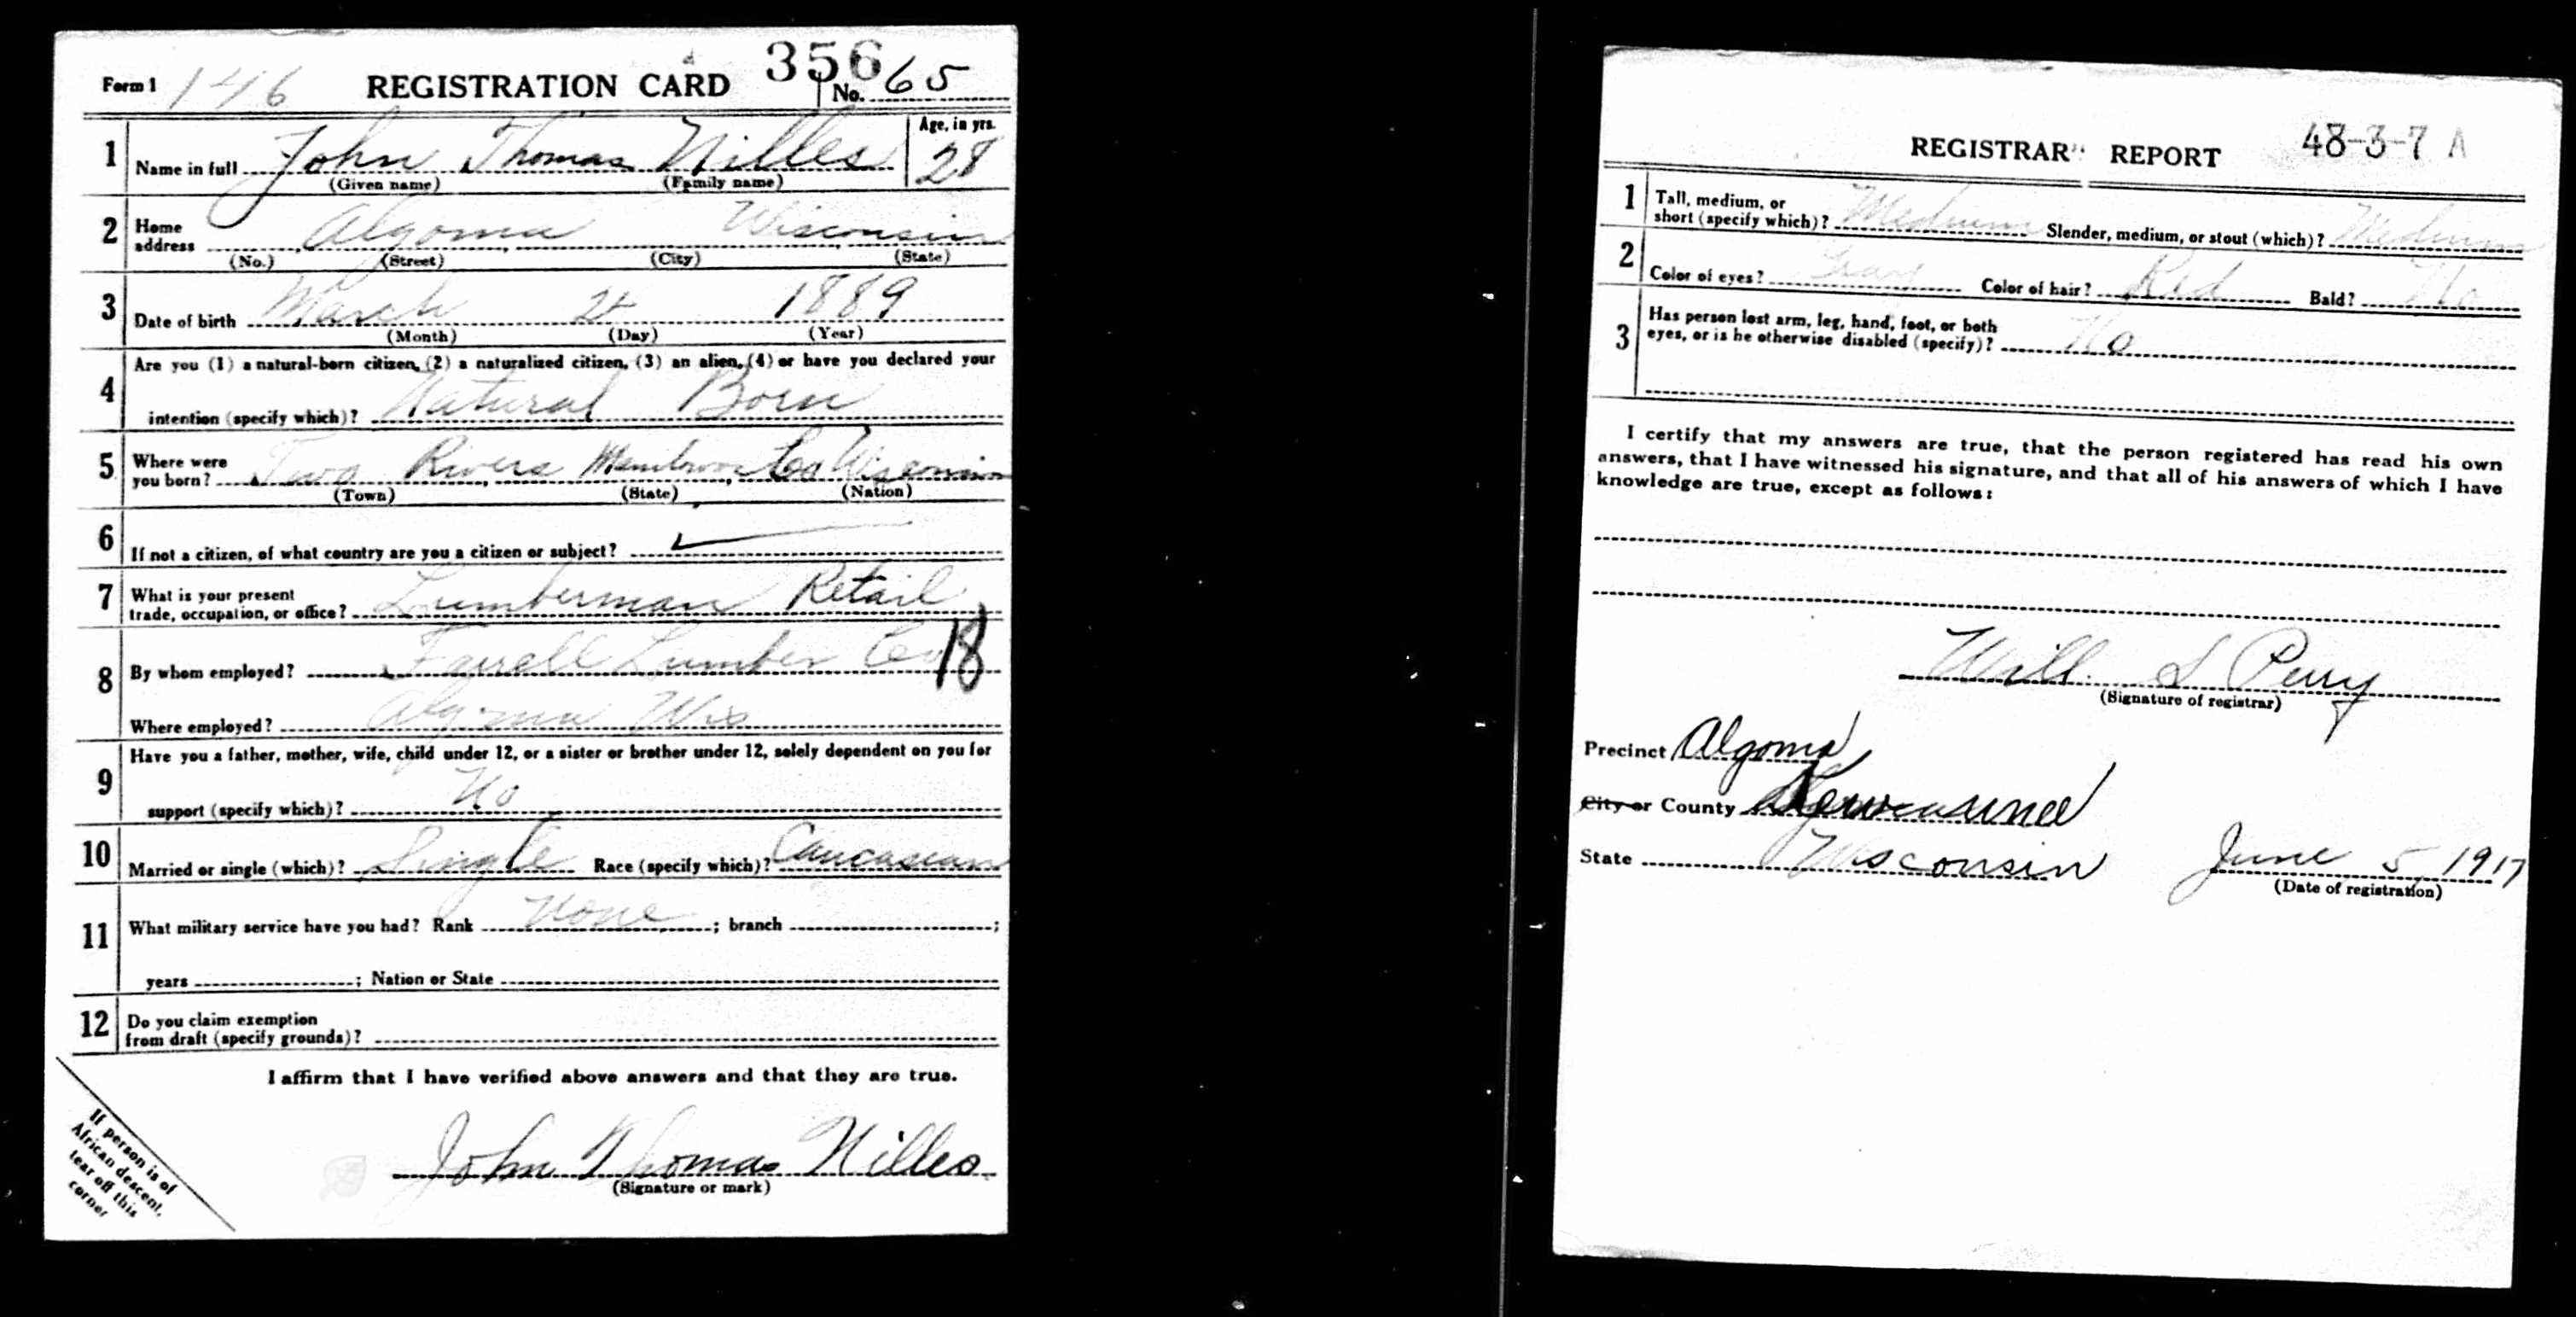 356
Form 1 146 REGISTRATION CARD No. 65
1 Name in full John Thomas Nilles Age, in yrs. 28
(Given name) (Family name)
2 Home address Algoma Wisconsin
(No.) (Street) (City) (State)
3 Date of birth March 1889
(Month) (Day) (Year)
4 Are you (1) a natural-born citizen, (2) a naturalized citizen, (3) an alien, (4) or have you declared your
intention (specify which)? Natural Born
5 Where were you born? Two Rivers Co Wisconsin
(Town) (State) (Nation)
6 If not a citizen, of what country are you a citizen or subject?
7 What is your present
trade, occupation, or office? Lumberman Retail
8 By whom employed? Farrell Lumber Co 18
Where employed? Algoma Wis
9 Have you a father, mother, wife, child under 12, or a sister or brother under 12, solely dependent on you for
support (specify which)? No
10 Married or single (which)? Single Race (specify which)? Caucasian
11 What military service have you had? Rank None ; branch ;
years ; Nation or State
12 Do you claim exemption
from draft (specify grounds)?
I affirm that I have verified above answers and that they are true.
John Thomas Nilles
(Signature or mark)
If person is of
African descent,
tear off this
corner
REGISTRAR'S REPORT 48-3-7 A
1 Tall, medium, or
short (specify which)? Medium Slender, medium, or stout (which)? Medium
2 Color of eyes? Gray Color of hair? Red Bald? No
3 Has person lost arm, leg, hand, foot, or both
eyes, or is he otherwise disabled (specify)? No
I certify that my answers are true, that the person registered has read his own
answers, that I have witnessed his signature, and that all of his answers of which I have
knowledge are true, except as follows:
Will S Perry
(Signature of registrar)
Precinct Algoma
City or County Kewaunee
State Wisconsin June 5, 1917
(Date of registration)